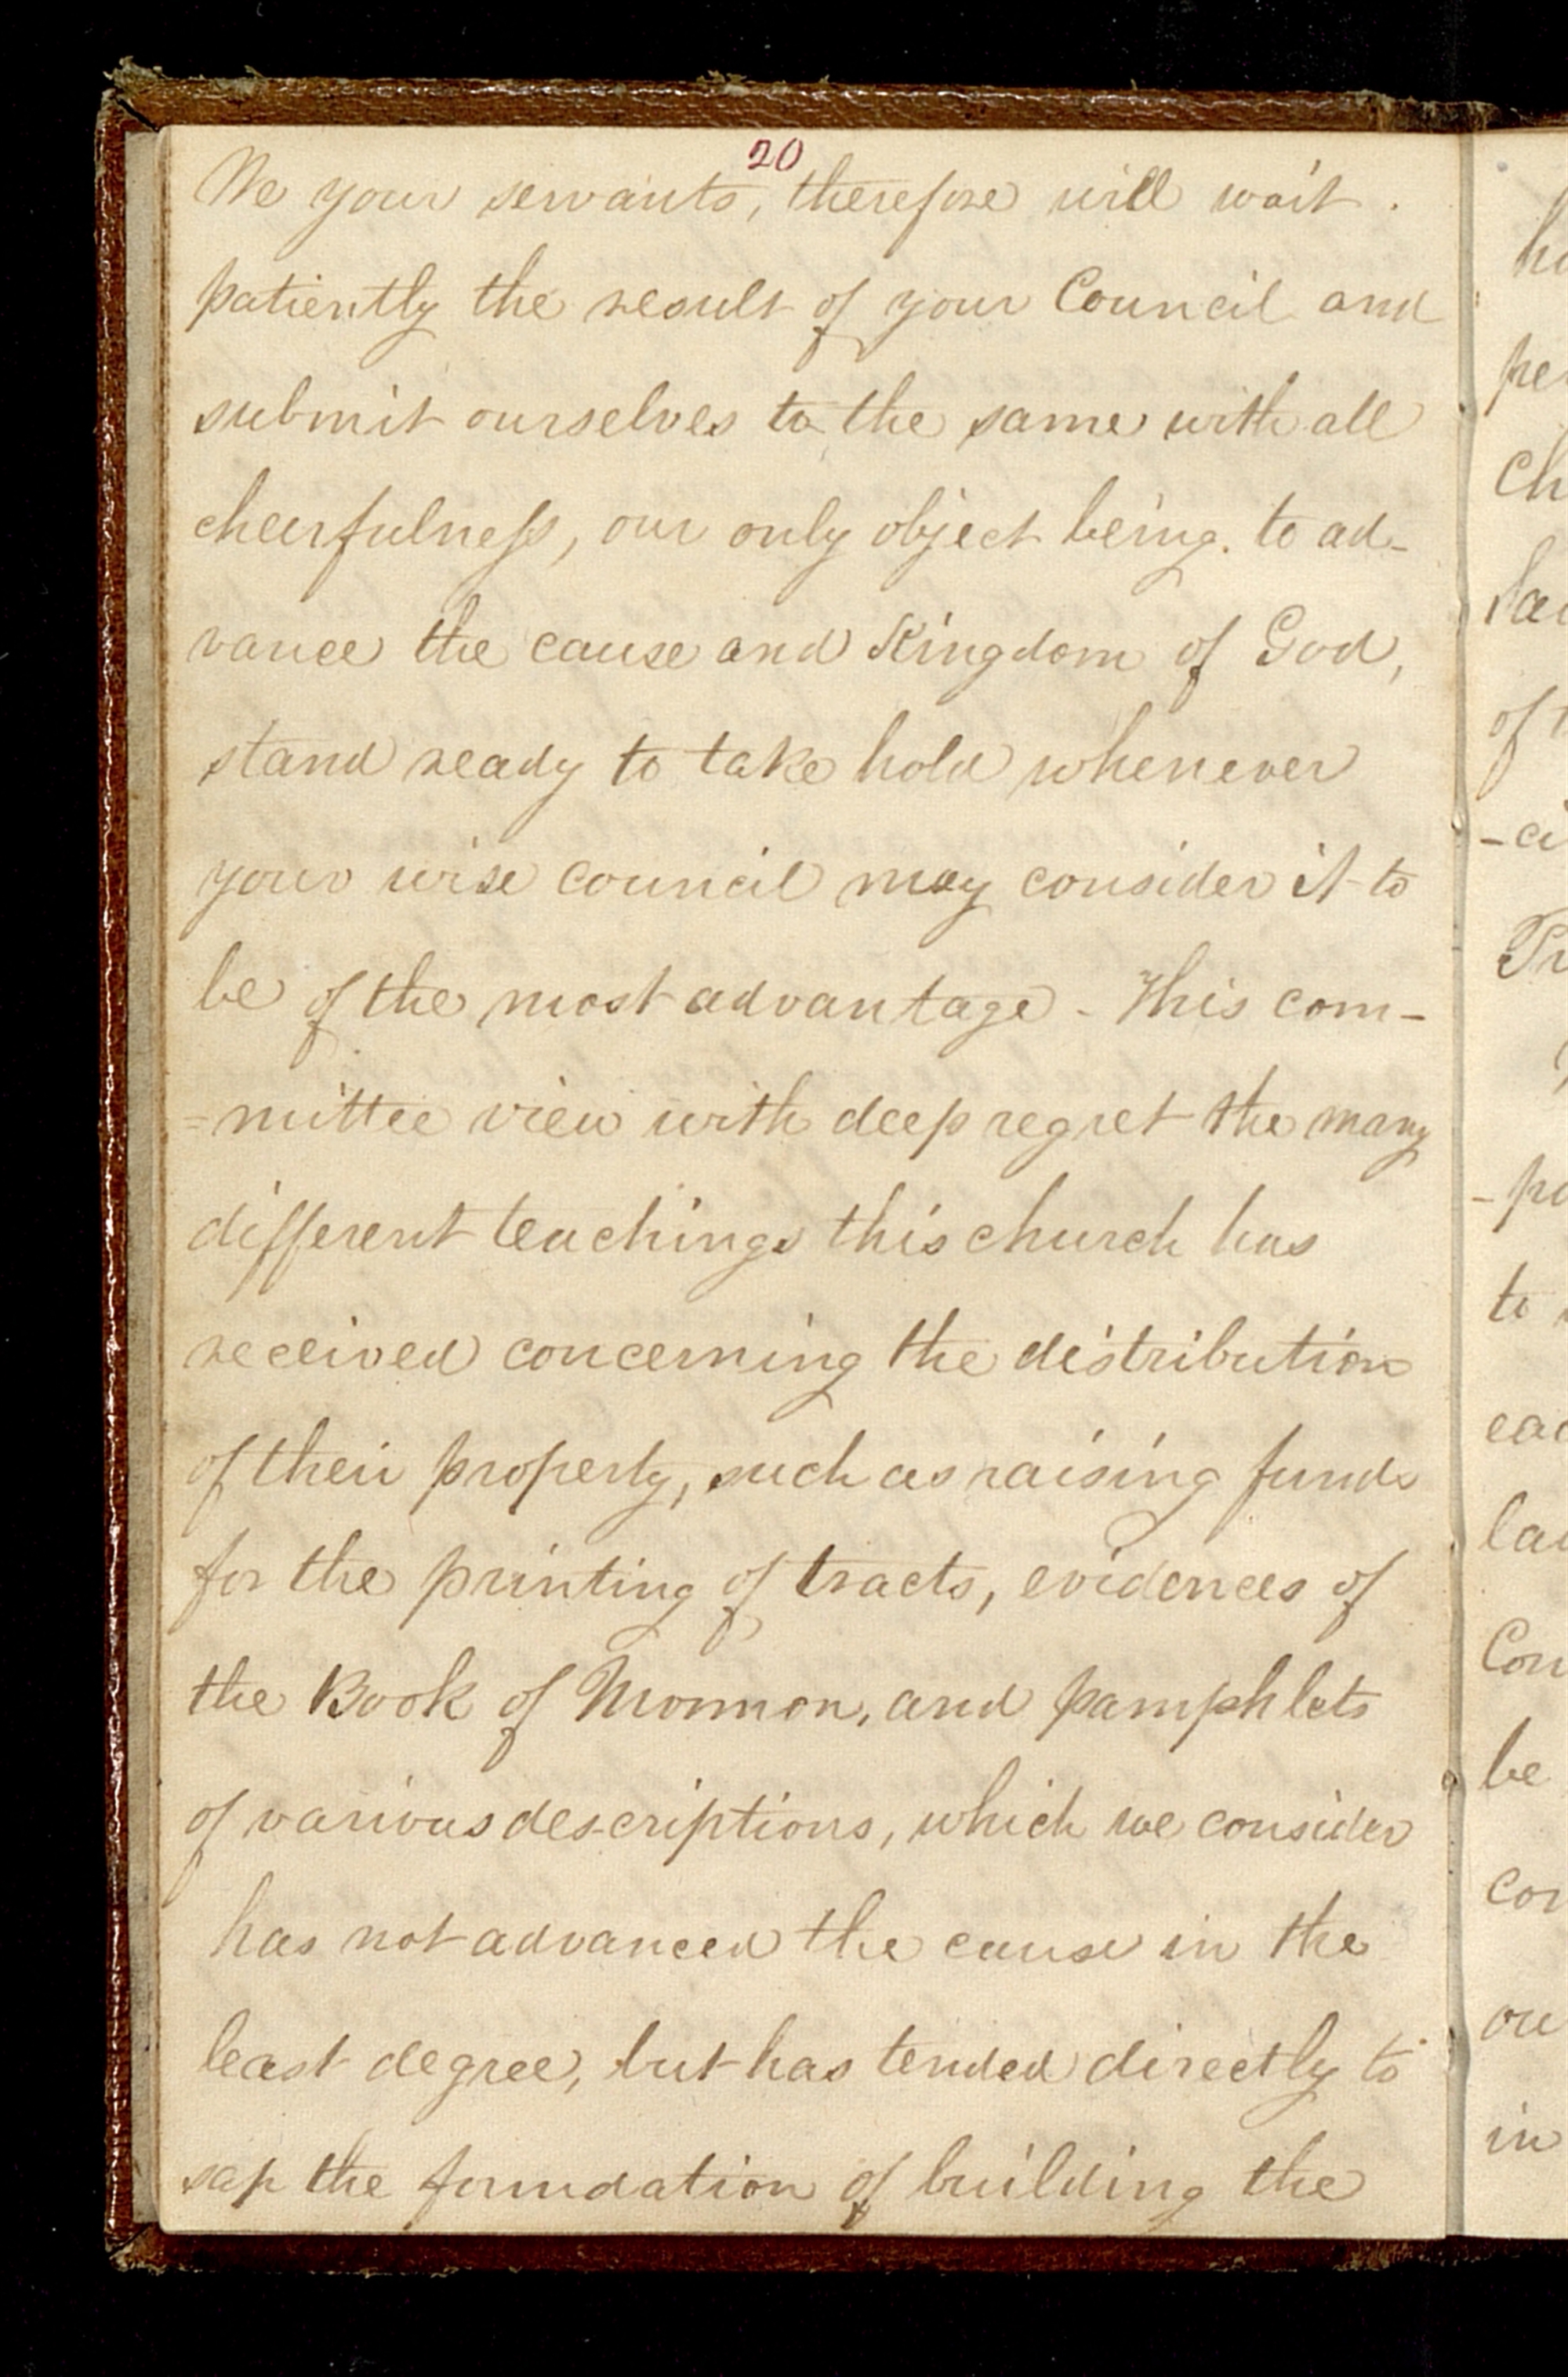 20
We your servants, therefore will wait.
patiently the result of your Council and
submit ourselves to the same with all
cheerfulness, our only object being. to ad-
vance the cause and Kingdom of God,
stand ready to take hold whenever
your wise council may consider it to
be of the most advantage - This com-
=mittee view with deep regret the many
different teachings this church has
received concerning the distribution
of their property, such as raising funds
for the printing of tracts, evidences of
the Book of Mormon, and pamphlets
of various descriptions, which we consider
has not advanced the cause in the
least degree, but has tended directly to
sap the foundation of building the